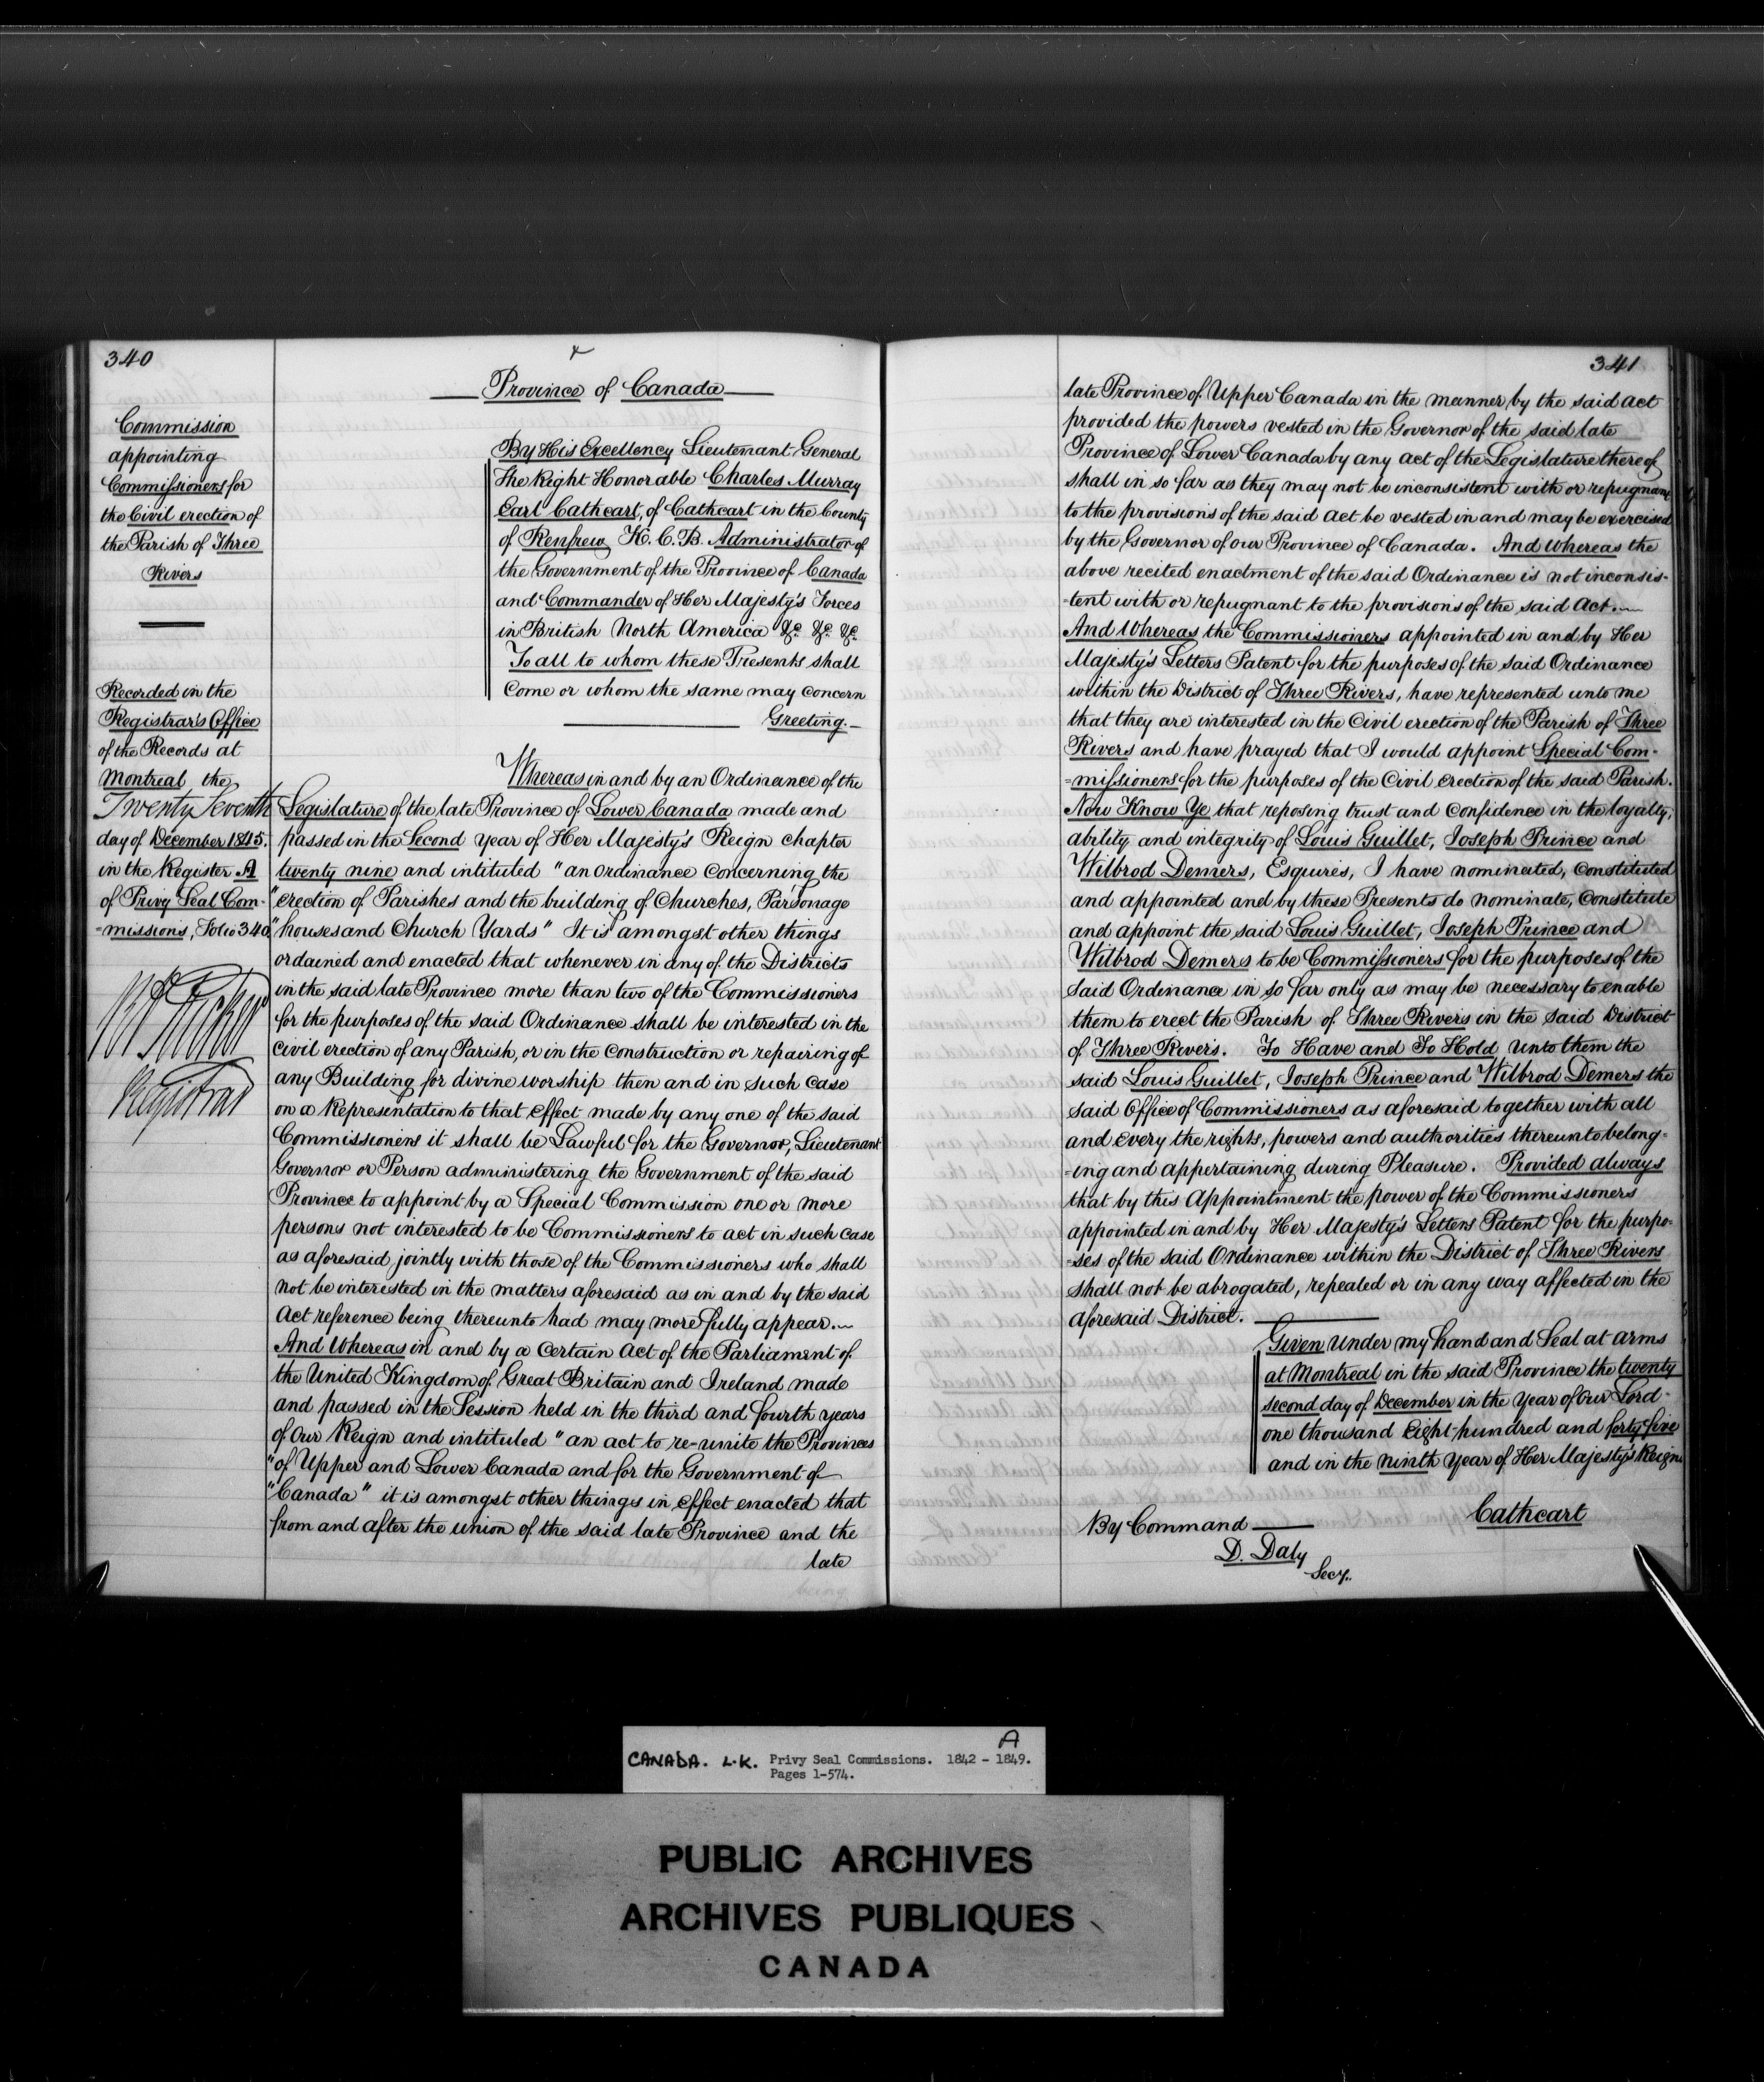 340
Commission
appointing
Commissioners for
the Civil erection of
the Parish of Three
Rivers
Recorded in the
Registrar's Office
of the Records at
Montreal the
Twenty Seventh
day of December 1845.
in the Register A
of Privy Seal Com-
=missions, Folio 340
Registrar
Province of Canada
By His Excellency Lieutenant General
The Right Honorable Charles Murray
Earl Cathcart, of Cathcart in the County
of Renfrew K. C. B. Administrator of
the Government of the Province of Canada
and Commander of Her Majesty's Forces
in British North America &c. &c. &c.
To all to whom these Presents shall
Come or whom the same may concern
Greeting.—
Whereas in and by an Ordinance of the
Legislature of the late Province of Lower Canada made and
passed in the Second year of Her Majesty's Reign chapter
twenty nine and intituled "an Ordinance Concerning the
"erection of Parishes and the building of Churches, Parsonage
"houses and Church Yards" It is amongst other things
ordained and enacted that whenever in any of the Districts
in the said late Province more than two of the Commissioners
for the purposes of the said Ordinance shall be interested in the
civil erection of any Parish, or in the Construction or repairing of
any Building for divine worship then and in such case
on a Representation to that effect made by any one of the said
Commissioners it shall be Lawful for the Governor, Lieutenant
Governor or Person administering the Government of the said
Province to appoint by a Special Commission one or more
persons not interested to be Commissioners to act in such case
as aforesaid jointly with those of the Commissioners who shall
not be interested in the matters aforesaid as in and by the said
Act reference being thereunto had may more fully appear.—
And Whereas in and by a Certain Act of the Parliament of
the United Kingdom of Great Britain and Ireland made
and passed in the Session held in the third and fourth years
of Our Reign and intituled "an act to re-unite the Provinces
"of Upper and Lower Canada and for the Government of
"Canada" it is amongst other things in effect enacted that
from and after the union of the said late Province and the
late
341
late Province of Upper Canada in the manner by the said act
provided the powers vested in the Governor of the said late
Province of Lower Canada by any act of the Legislature thereof
shall in so far as they may not be inconsistent with or repugnant
to the provisions of the said Act be vested in and may be exercised
by the Governor of our Province of Canada. And Whereas the
above recited enactment of the said Ordinance is not inconsis-
-tent with or repugnant to the provisions of the said Act.—
And Whereas the Commissioners appointed in and by Her
Majesty's Letters Patent for the purposes of the said Ordinance
within the District of Three Rivers, have represented unto me
that they are interested in the Civil erection of the Parish of Three
Rivers and have prayed that I would appoint Special Com-
=missioners for the purposes of the Civil erection of the said Parish.
Now Know Ye that reposing trust and Confidence in the loyalty,
ability and integrity of Louis Guillet, Joseph Prince and
Wilbrod Demers, Esquires, I have nominated, Constituted
and appointed and by these Presents do nominate, Constitute
and appoint the said Louis Guillet, Joseph Prince and
Wilbrod Demers to be Commissioners for the purposes of the
said Ordinance in so far only as may be necessary to enable
them to erect the Parish of Three Rivers in the said District
of Three Rivers. To Have and To Hold unto them the
said Louis Guillet, Joseph Prince and Wilbrod Demers the
said Office of Commissioners as aforesaid together with all
and every the rights, powers and authorities thereunto belong=
-ing and appertaining during Pleasure. Provided always
that by this Appointment the power of the Commissioners
appointed in and by Her Majesty's Letters Patent for the purpo=
=ses of the said Ordinance within the District of Three Rivers
shall not be abrogated, repealed or in any way affected in the
aforesaid District.
Given Under my hand and Seal at arms
at Montreal in the said Province the twenty
second day of December in the Year of Our Lord
one thousand Eight hundred and forty five
and in the ninth Year of Her Majesty's Reign.
Cathcart
By Command
D. Daly
Secy.
A
CANADA. L.K. Privy Seal Commissions. 1842 - 1849.
Pages 1-574.
PUBLIC ARCHIVES
ARCHIVES PUBLIQUES
CANADA